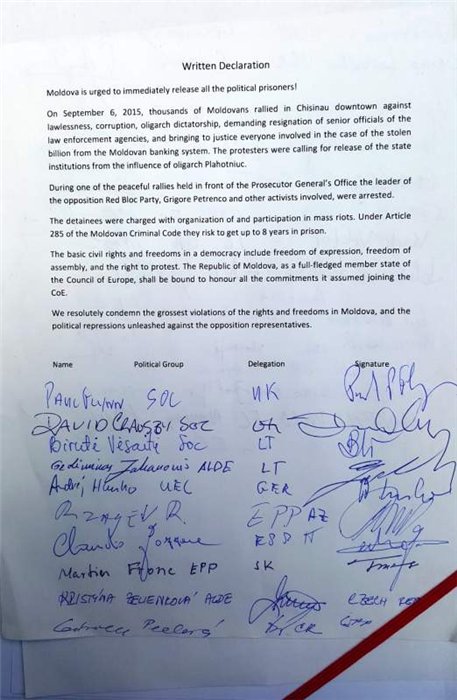 Written Declaration
Moldova is urged to immediately release all the political prisoners!
On September 6, 2015, thousands of Moldovans rallied in Chisinau downtown against
lawlessness, corruption, oligarch dictatorship, demanding resignation of senior officials of the
law enforcement agencies, and bringing to justice everyone involved in the case of the stolen
billion from the Moldovan banking system. The protesters were calling for release of the state
institutions from the influence of oligarch Plahotniuc.
During one of the peaceful rallies held in front of the Prosecutor General's Office the leader of
the opposition Red Bloc Party, Grigore Petrenco and other activists involved, were arrested.
The detainees were charged with organization of and participation in mass riots. Under Article
285 of the Moldovan Criminal Code they risk to get up to 8 years in prison.
The basic civil rights and freedoms in a democracy include freedom of expression, freedom of
assembly, and the right to protest. The Republic of Moldova, as a full-fledged member state of
the Council of Europe, shall be bound to honour all the commitments it assumed joining the
CoE.
We resolutely condemn the grossest violations of the rights and freedoms in Moldova, and the
political repressions unleashed against the opposition representatives.
Name Political Group Delegation Signature
PAUL FLYNN SOC UK
DAVID SOC
Birutė Vėsaitė Soc LT
ALDE LT
Andrej Hunko UEL GER
R. EPP AZ
Martin EPP SK
KRISTÝNA ZELIENKOVÁ ALDE CZECH REP
CR